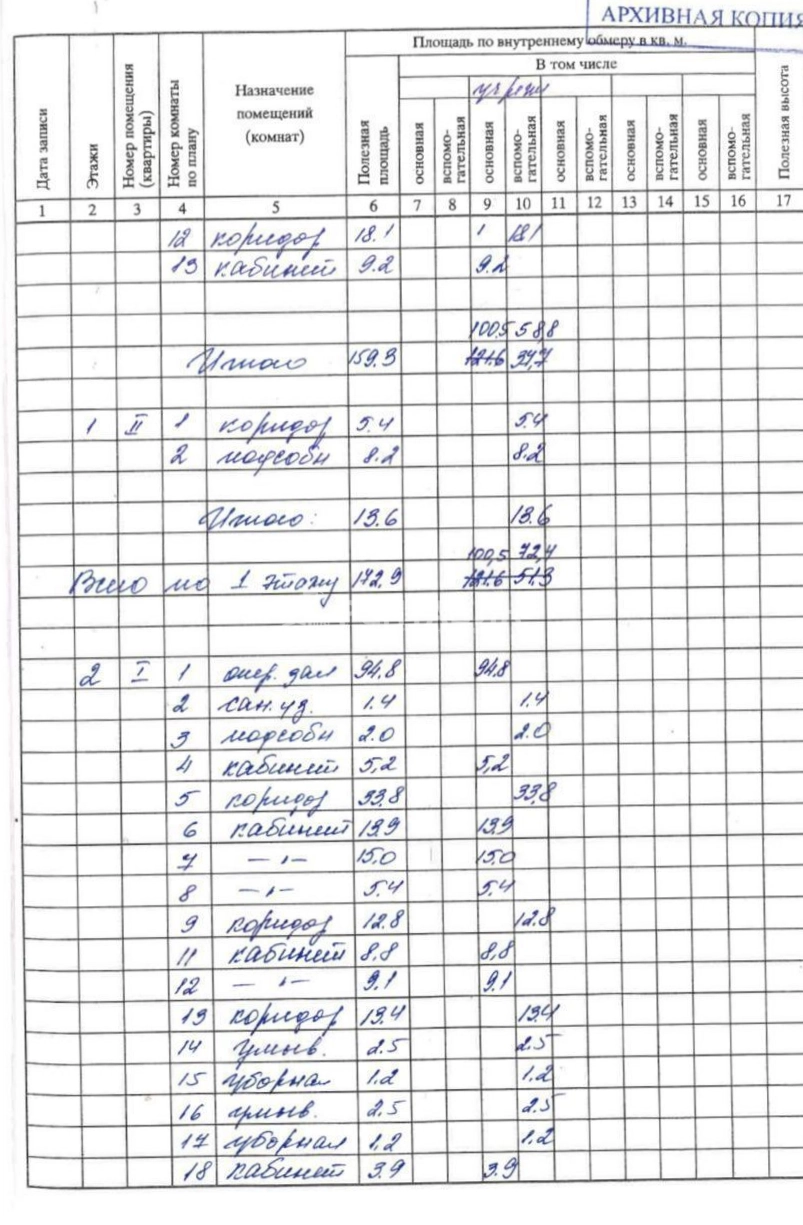 АРХИВНАЯ КОПИЯ
Площадь по внутреннему обмеру в кв. м.
В том числе
Дата записи
Этажи
Номер помещения (квартиры)
Номер комнаты по плану
Назначение помещений (комнат)
Полезная площадь
основная
вспомо-гательная
основная
вспомо-гательная
основная
вспомо-гательная
основная
вспомо-гательная
основная
вспомо-гательная
Полезная высота
1 2 3 4 5 6 7 8 9 10 11 12 13 14 15 16 17
12 коридор 18.1 18.1
13 кабинет 9.2 9.2
100,5 58,8
Итого 159.3 121.6 37,7
1 II 1 коридор 5.4 5.4
2 подсобн 8.2 8.2
Итого: 13.6 13.6
100,5 72,4
Всего по 1 этажу 172,9 121.6 51,3
2 I 1 опер. зал 94.8 94.8
2 сан.уз. 1.4 1.4
3 подсобн 2.0 2.0
4 кабинет 5,2 5,2
5 коридор 33.8 33,8
6 кабинет 13.9 13.9
7 —"— 15.0 15.0
8 —"— 5.4 5.4
9 коридор 12.8 12.8
11 кабинет 8.8 8,8
12 —"— 9.1 9.1
13 коридор 13.4 13.4
14 умыв. 2.5 2.5
15 уборная 1.2 1.2
16 умыв. 2.5 2.5
17 уборная 1.2 1.2
18 кабинет 3.9 3.9